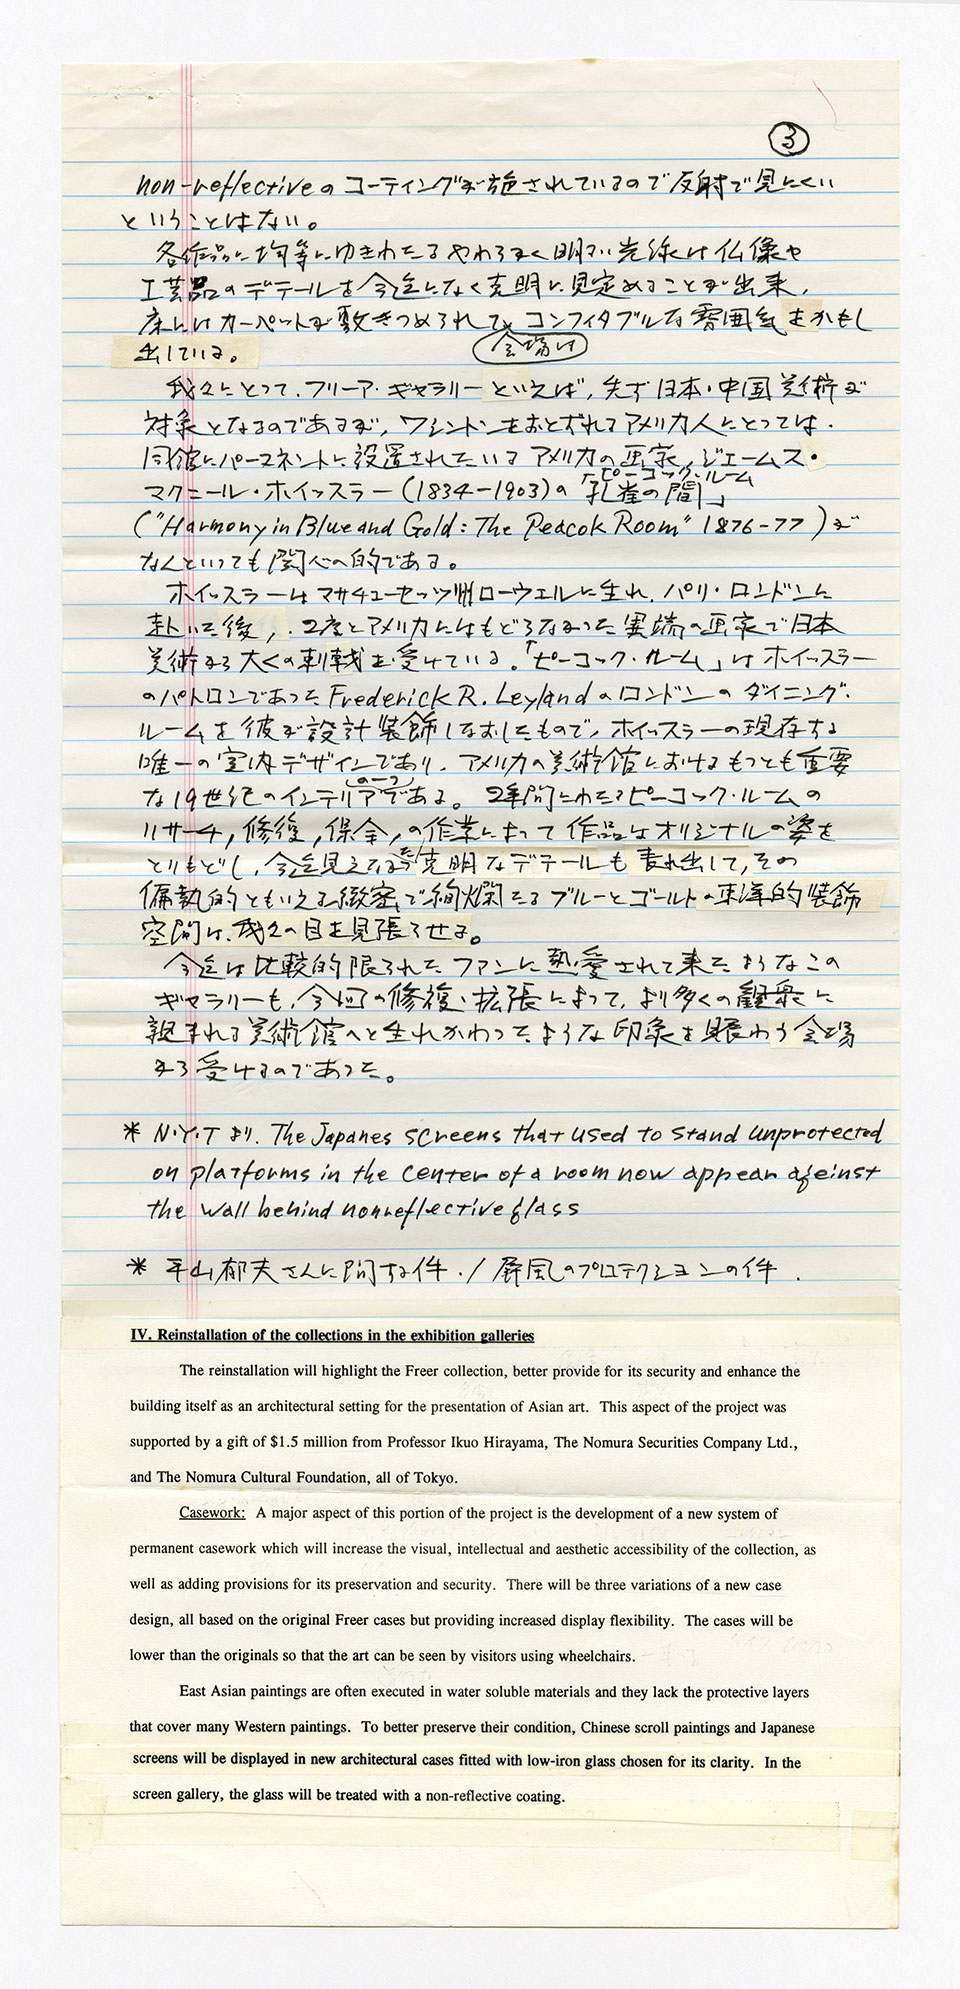 3
non-reflectiveのコーティングが施されているので反射で見にくい
ということはない。
各作品に均等にゆきわたるやわらかく明るい光線は仏像や
工芸品のデテールを今迄になく克明に見定めることが出来、
床にはカーペットが敷きつめられて、コンフィタブルな雰囲気をかもし
会場は
出している。
我々にとって、フリーア・ギャラリーといえば、先ず日本・中国美術が
対象となるのであるが、ワシントンをおとずれるアメリカ人にとっては、
同館にパーマネントに設置されているアメリカの画家、ジェームス・
マクニール・ホイッスラー(1834-1903)の「孔雀の間」
ピーコック・ルーム
("Harmony in Blue and Gold: The Peacok Room" 1876-77)が
なんといっても関心の的である。
ホイッスラーはマサチューセッツ州ローウェルに生れ、パリ・ロンドンに
赴いた後、2度とアメリカにはもどらなかった異端の画家で日本
美術から大くの刺戟を受けている。「ピーコック・ルーム」はホイッスラー
のパトロンであったFrederick R. Leylandのロンドンのダイニング・
ルームを彼が設計装飾しなおしたもので、ホイッスラーの現存する
唯一の室内デザインであり、アメリカの美術館におけるもっとも重要
な19世紀のインテリアの一つである。2年間にわたるピーコック・ルームの
リサーチ,修復,保全,の作業によって作品はオリジナルの姿を
とりもどし、今迄見えなかった克明なデテールも表れ出して,その
偏執的ともいえる緻密で絢爛たるブルーとゴールドの東洋的装飾
空間は、我々の目を見張らせる。
今迄は比較的限られたファンに熱愛されて来たようなこの
ギャラリーも、今回の修復・拡張によって、より多くの観衆に
親まれる美術館へと生れかわったような印象を賑わう会場
から受けるのであった。
* N.Y.Tより. The Japanes screens that used to stand unprotected
on platforms in the center of a room now appear ageinst
the wall behind nonreflective glass
* 平山郁夫さんに関する件./屏風のプロテクションの件.
IV. Reinstallation of the collections in the exhibition galleries
The reinstallation will highlight the Freer collection, better provide for its security and enhance the
building itself as an architectural setting for the presentation of Asian art. This aspect of the project was
supported by a gift of $1.5 million from Professor Ikuo Hirayama, The Nomura Securities Company Ltd.,
and The Nomura Cultural Foundation, all of Tokyo.
Casework: A major aspect of this portion of the project is the development of a new system of
permanent casework which will increase the visual, intellectual and aesthetic accessibility of the collection, as
well as adding provisions for its preservation and security. There will be three variations of a new case
design, all based on the original Freer cases but providing increased display flexibility. The cases will be
lower than the originals so that the art can be seen by visitors using wheelchairs.
East Asian paintings are often executed in water soluble materials and they lack the protective layers
that cover many Western paintings. To better preserve their condition, Chinese scroll paintings and Japanese
screens will be displayed in new architectural cases fitted with low-iron glass chosen for its clarity. In the
screen gallery, the glass will be treated with a non-reflective coating.